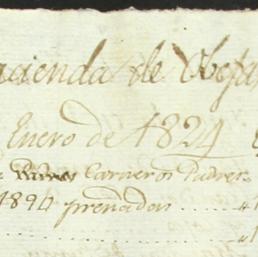 acienda de Obeja
Enero de 1824
Carneros Padres
1890 preñadas